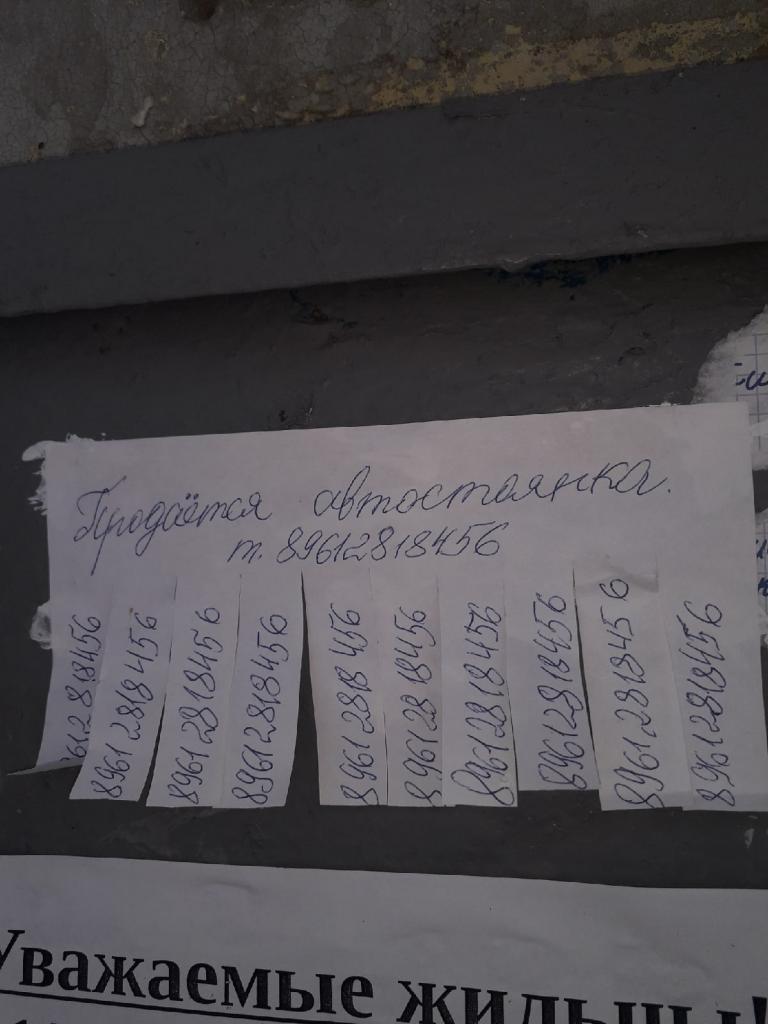 Продаётся автостоянка.
т. 89612818456
612818456
8961 2818456
8961 2818456
8961 2818456
8961 2818 456
8961 28 18456
8961 2818456
8961 2818456
8961 2818456
8961 2818456
Уважаемые жильцы!